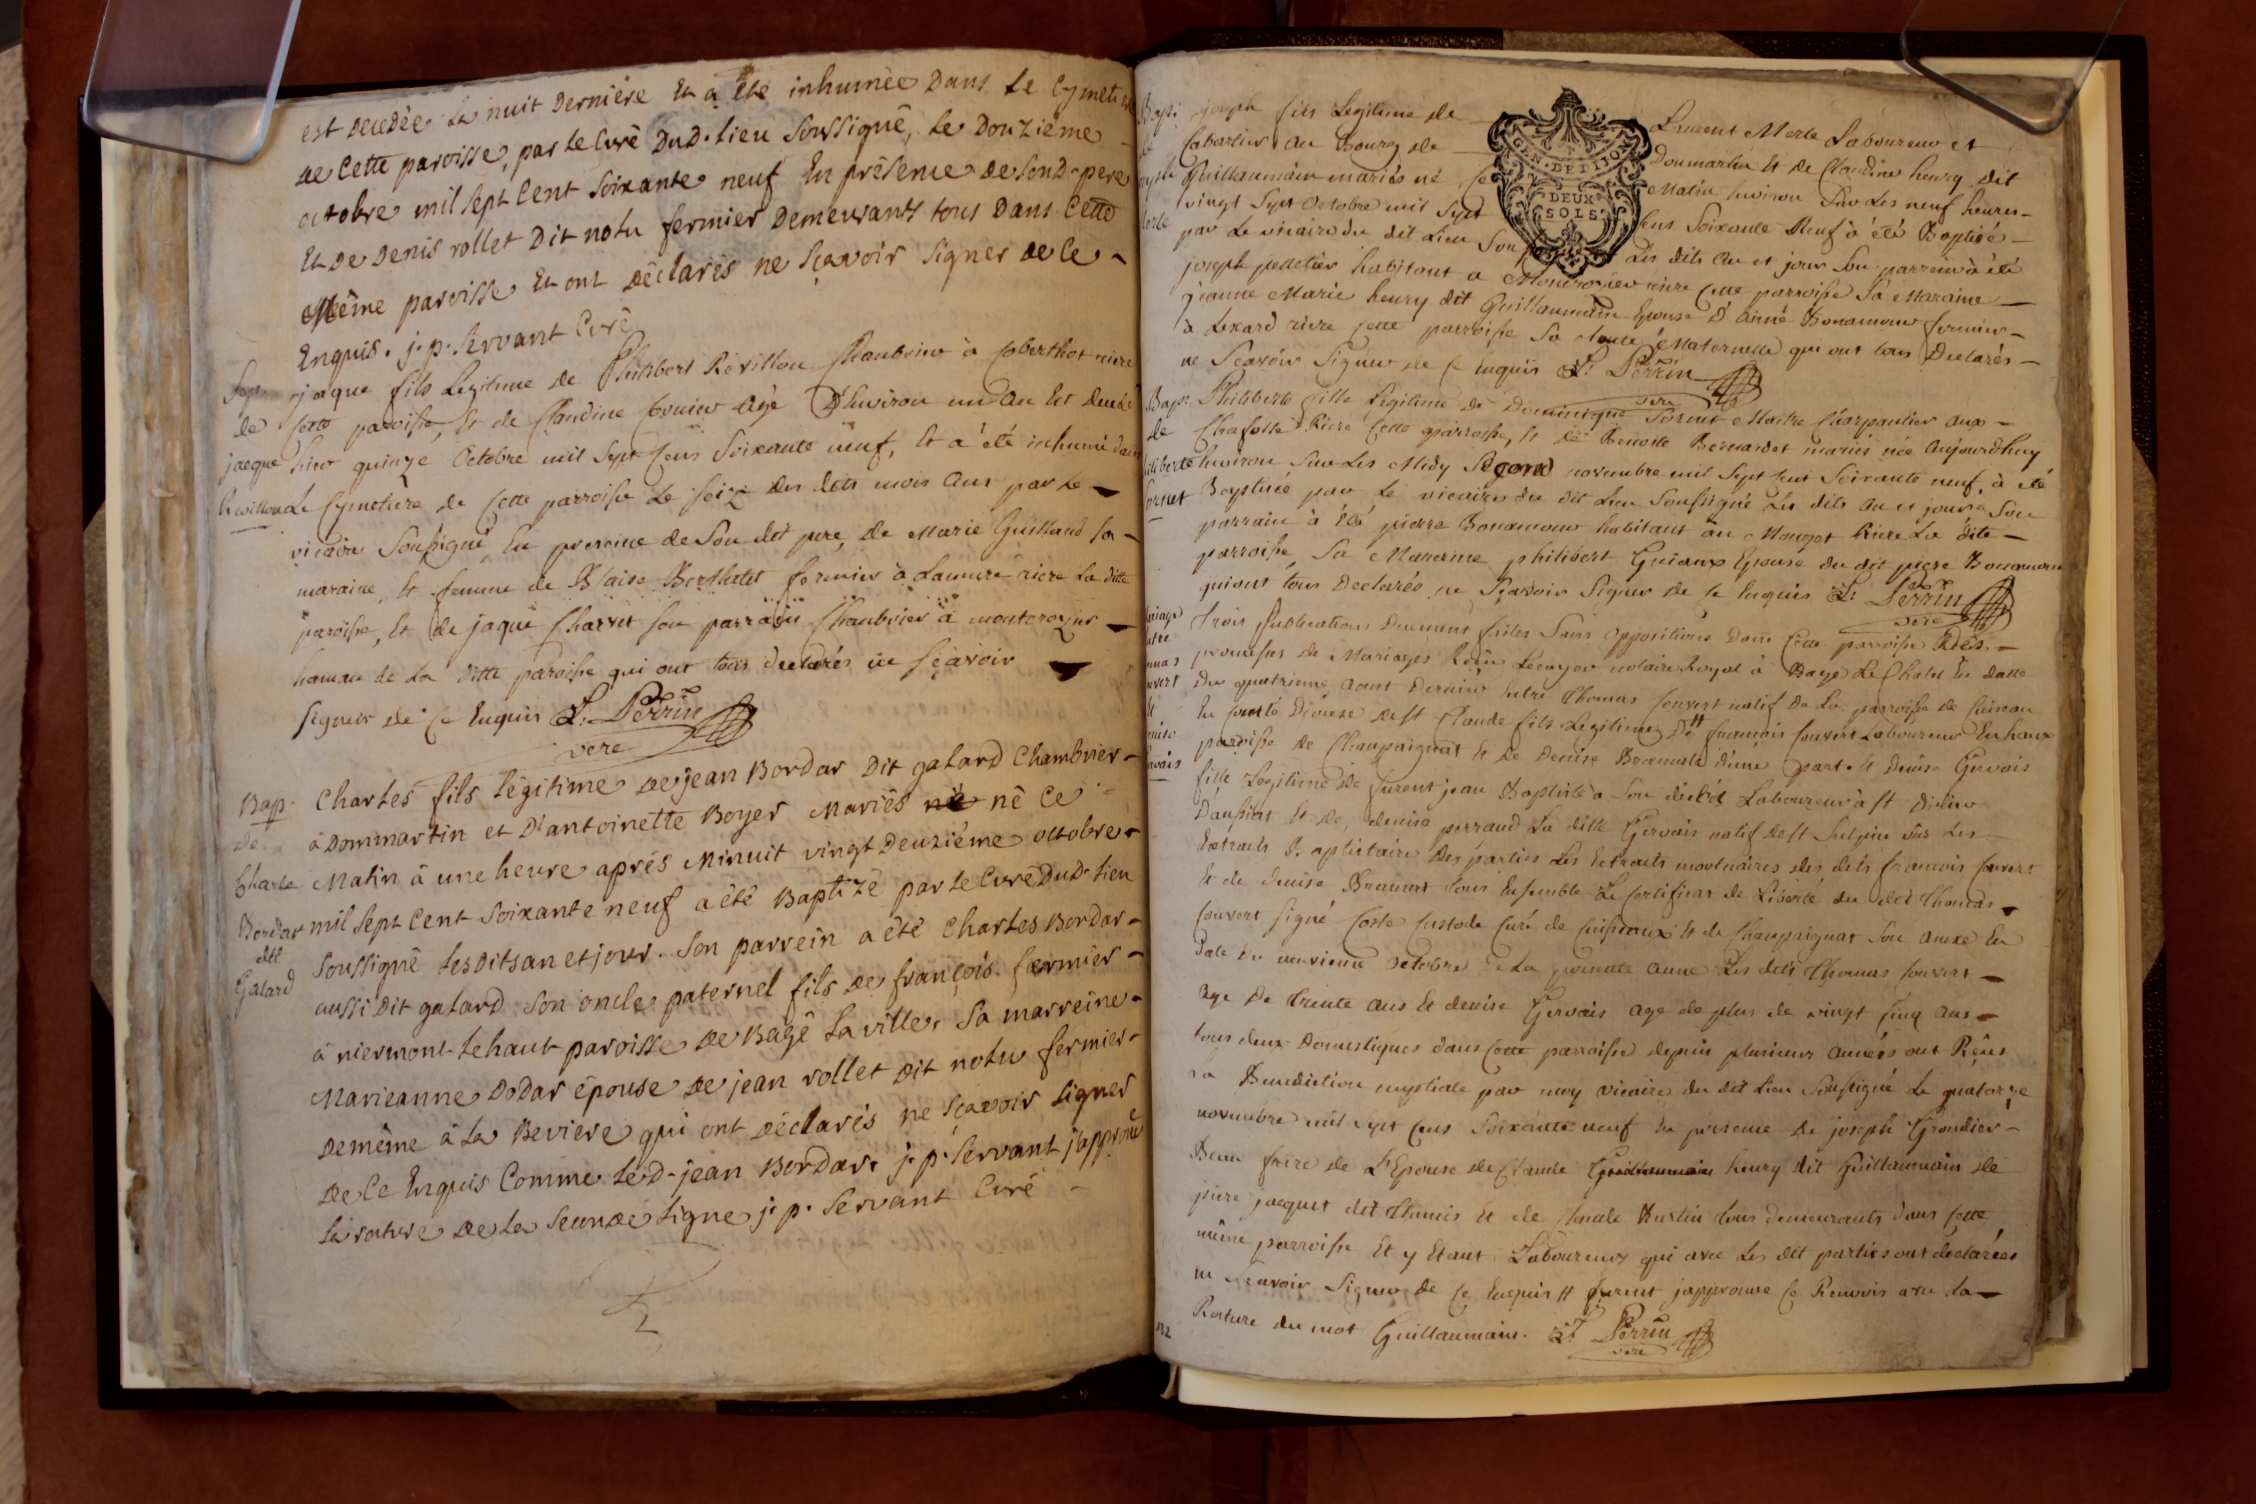 est decedée la nuit derniére et a été inhumée dans le Cymetie
de Cette paroisse, par le Curé dud. lieu soussigné, le douzieme
octobre mil sept Cent soixante neuf En présence de sond. pere
Et de Denis rollet dit notu fermier demeurants tous dans Cette
Même paroisse et ont déclarés ne sçavoir signer de Ce
Enquis. j. p. Servant Curé
jaque fils Legitime de Philibert Révillon Chambrier à Coberthot riere
de
Cette paroisse, Et de Claudine fournier agé d'Environ un an Est decedé
jacque
hier quinze Octobre mil Sept Cens Soixante neuf, Et a été inhumé dans
Le Cymetiere de Cette parroisse Le seize des dits mois Ans par Le
vicaire Soussigné En presence de Son dit pere, de Marie Guilland sa
maraine, Et femme de Blaise Berthelet fermier à Laumere riere La ditte
paroisse, Et de jaque Charvet son parrain Chambrier à montcrozier
hameau de La ditte paroisse qui ont tous declarés ne sçavoir
signer de Ce Enquis L. Perrin
vere
Bap.
Charles fils légitime de jean Bordar dit galard Chambrier
de
à Dommartin et D'antoinette Boyer Mariés né né Ce
Charle
Matin à une heure aprés Minuit vingt Deuziéme octobre
Bordar
mil sept Cent soixante neuf a été Baptizé par le Curé Dud. lieu
dit
Galard
soussigné les dits an et jour. Son parrein a été Charles Bordar
aussi dit galard son oncle paternel fils de françois fermier
à niermont le haut paroisse de Bagé la ville, sa marreine
Marieanne Dodar épouse de jean rollet dit notu fermier
demême à la Beviere qui ont déclarés ne sçavoir signer
de Ce Enquis Comme led. jean Bordar. j. p. Servant j'approuve
la rature de la seconde ligne j. p. Servant Curé
joseph fils Legitime de Laurent Merle Laboureur et
Cabartier au Bourg de Donmartin Et de Claudine henry dit
Guillaumain mariés né Ce Matin Environ Sur Les neuf heures
vingt Sept Octobre mil Sept Cens Soixante Neuf à été Baptisé
GEN. DE DIJON
DEUX
SOLS
par Le vicaire du dit Lieu Les dits An et jour Son parrein à été
joseph pelletier habitant a Montcrozier riere Cette parroisse Sa Maraine
jeanne Marie henry dit Guillaumain Epouse d'aimé Bonamour fermier
à Lexard riere Cette parroisse Sa tante Maternelle qui ont tous Declarés
ne Scavoir Signer de Ce Enquis L. Perrin
vere
Bap.
Philiberte fille Legitime de Dominique Fornet Maitre Charpantier aux
de
Chafolle Riere Cette parroisse, Et de Benoite Bernardot mariés née Aujourdhuy
Environ Sur Les Midy Segond novembre mil Sept Cent Soixante neuf, à été
Baptisée par Le vicaire du dit Lieu Soussigné Les dits An et jour Son
parrain à été pierre Bonamour habitant au Mouget Riere La dite
parroisse, Sa Maraine philibert Guiaux Epouse du dit piere Bonamour
qui ont tous Declarés ne Sçavoir Signer de Ce Enquis L. Perrin
vere
trois Publications duement faites Sans Oppositions dans Cette parroisse
promesses de Mariages Notaire Royal à Bagé Le Chatel En datte
Du quatrieme aout Dernier Entre Thomas Convert natif de La parroisse de
En Comté Diocese de St Claude fils Legitime de francois Convert Laboureur
paroisse de Champaignat Et de Denise d'une part. Et Denise Gervais
fille Legitime de furent jean Baptiste Laboureur à St Didier
D'aussiat Et de denise perraud La ditte Gervais natif de St Sulpice vûs Les
Extraits Baptistaire des parties Les Extraits mortuaires des dits francois Convert
Et de denise tous Ensemble Le Certificat de Liberté du dit thomas
Convert signé Coste Custode Curé de Cuiseaux Et de Champaignat Son anexe En
Date du neuvieme Octobre de La presente anné Les dits Thomas Convert
age de trente ans Et denise Gervais age de plus de vingt Cinq ans
tous deux Domestiques dans Cette parroisse depuis plusieurs années ont Reçus
La Benediction nuptiale par moy vicaire du dit Lieu Soussigné Le quatorze
novembre mil Sept Cens Soixante neuf En presence de joseph Grandier
Beau frere de L'Epouse de Claude Guillaumain henry dit Guillaumain de
piere jacquet dit thomis Et de Claude tous demeurants dans Cette
même parroisse Et y Etant Laboureurs qui avec Les dit parties ont déclarées
ne Scavoir Signer de Ce Enquis # furent japprouve Ce Renvois avec La
Rature du mot Guillaumain. L. Perrin
vere